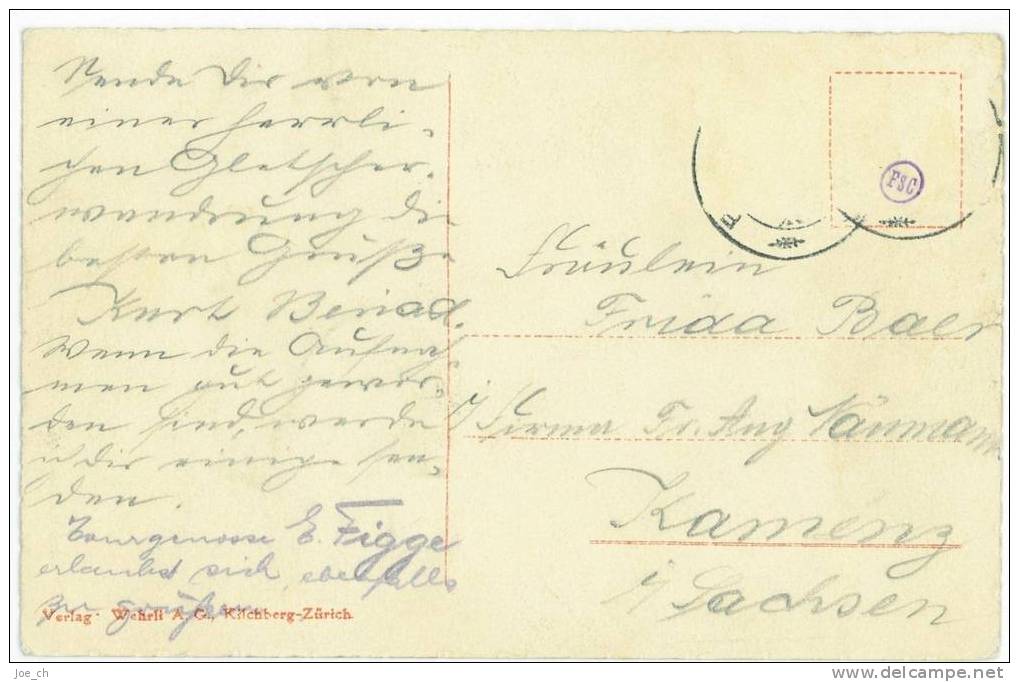 Sende Dir von
einer herrli-
chen Gletscher-
wandrung die
besten Grüße
Kurt Beriad.
Wenn die Aufnah-
men gut gewor-
den sind, werde
Dir einige sen-
den.
Tourgenosse E. Figge
erlaubt sich ebenfalls
zu grüßen
Verlag Wehrli A.G., Kilchberg-Zürich.
FSC
Fräulein
Frida Baer
i/ Firma Fr. Aug Naumann
Kamenz
i/ Sachsen
joe_ch
www.delcampe.net